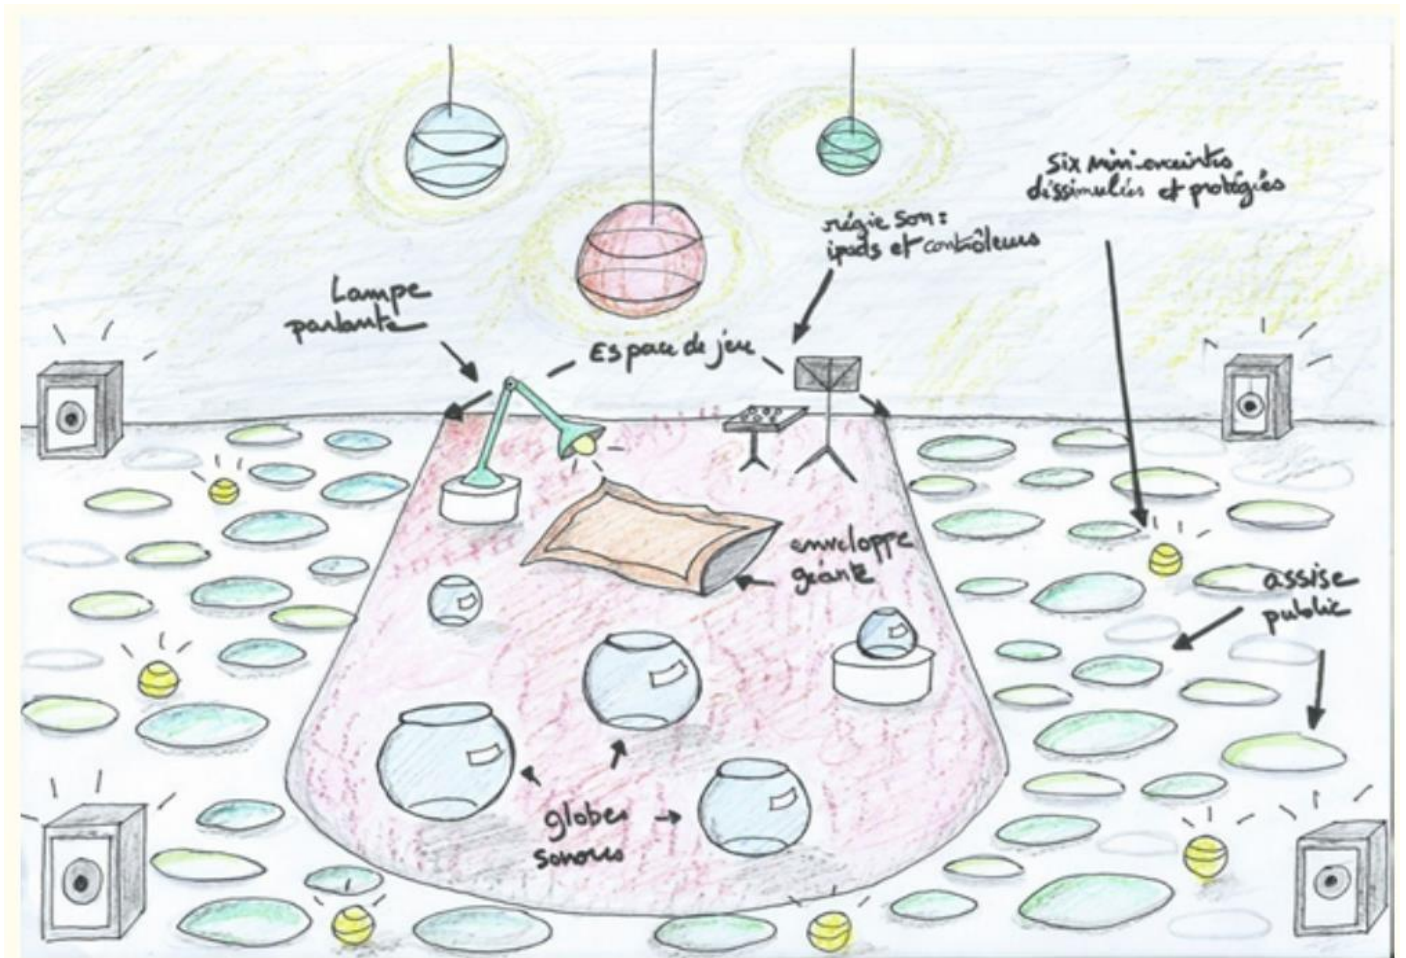 Six mini-enceintes
dissimulées et protégées
régie son :
ipads et contrôleurs
Lampe
parlante
Espace de jeu
enveloppe
géante
assise
public
globes
sonores